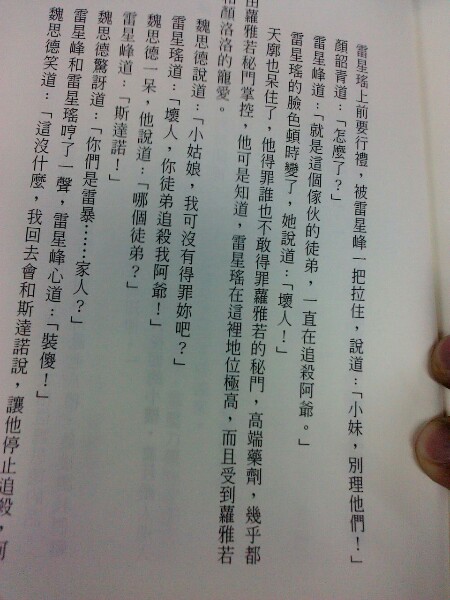 雷星瑤上前要行禮，被雷星峰一把拉住，說道：「小妹，別理他們！」
顏韶青道：「怎麼了？」
雷星峰道：「就是這個傢伙的徒弟，一直在追殺阿爺。」
雷星瑤的臉色頓時變了，她說道：「壞人！」
天廓也呆住了，他得罪誰也不敢得罪蘿雅若的秘門，高端藥劑，幾乎都
由蘿雅若秘門掌控，他可是知道，雷星瑤在這裡地位極高，而且受到蘿雅若
和顏洛洛的寵愛。
魏思德說道：「小姑娘，我可沒有得罪妳吧？」
雷星瑤道：「壞人，你徒弟追殺我阿爺！」
魏思德一呆，他說道：「哪個徒弟？」
雷星峰道：「斯達諾！」
魏思德驚訝道：「你們是雷暴……家人？」
雷星峰和雷星瑤哼了一聲，雷星峰心道：「裝傻！」
魏思德笑道：「這沒什麼，我回去會和斯達諾說，讓他停止追殺，何